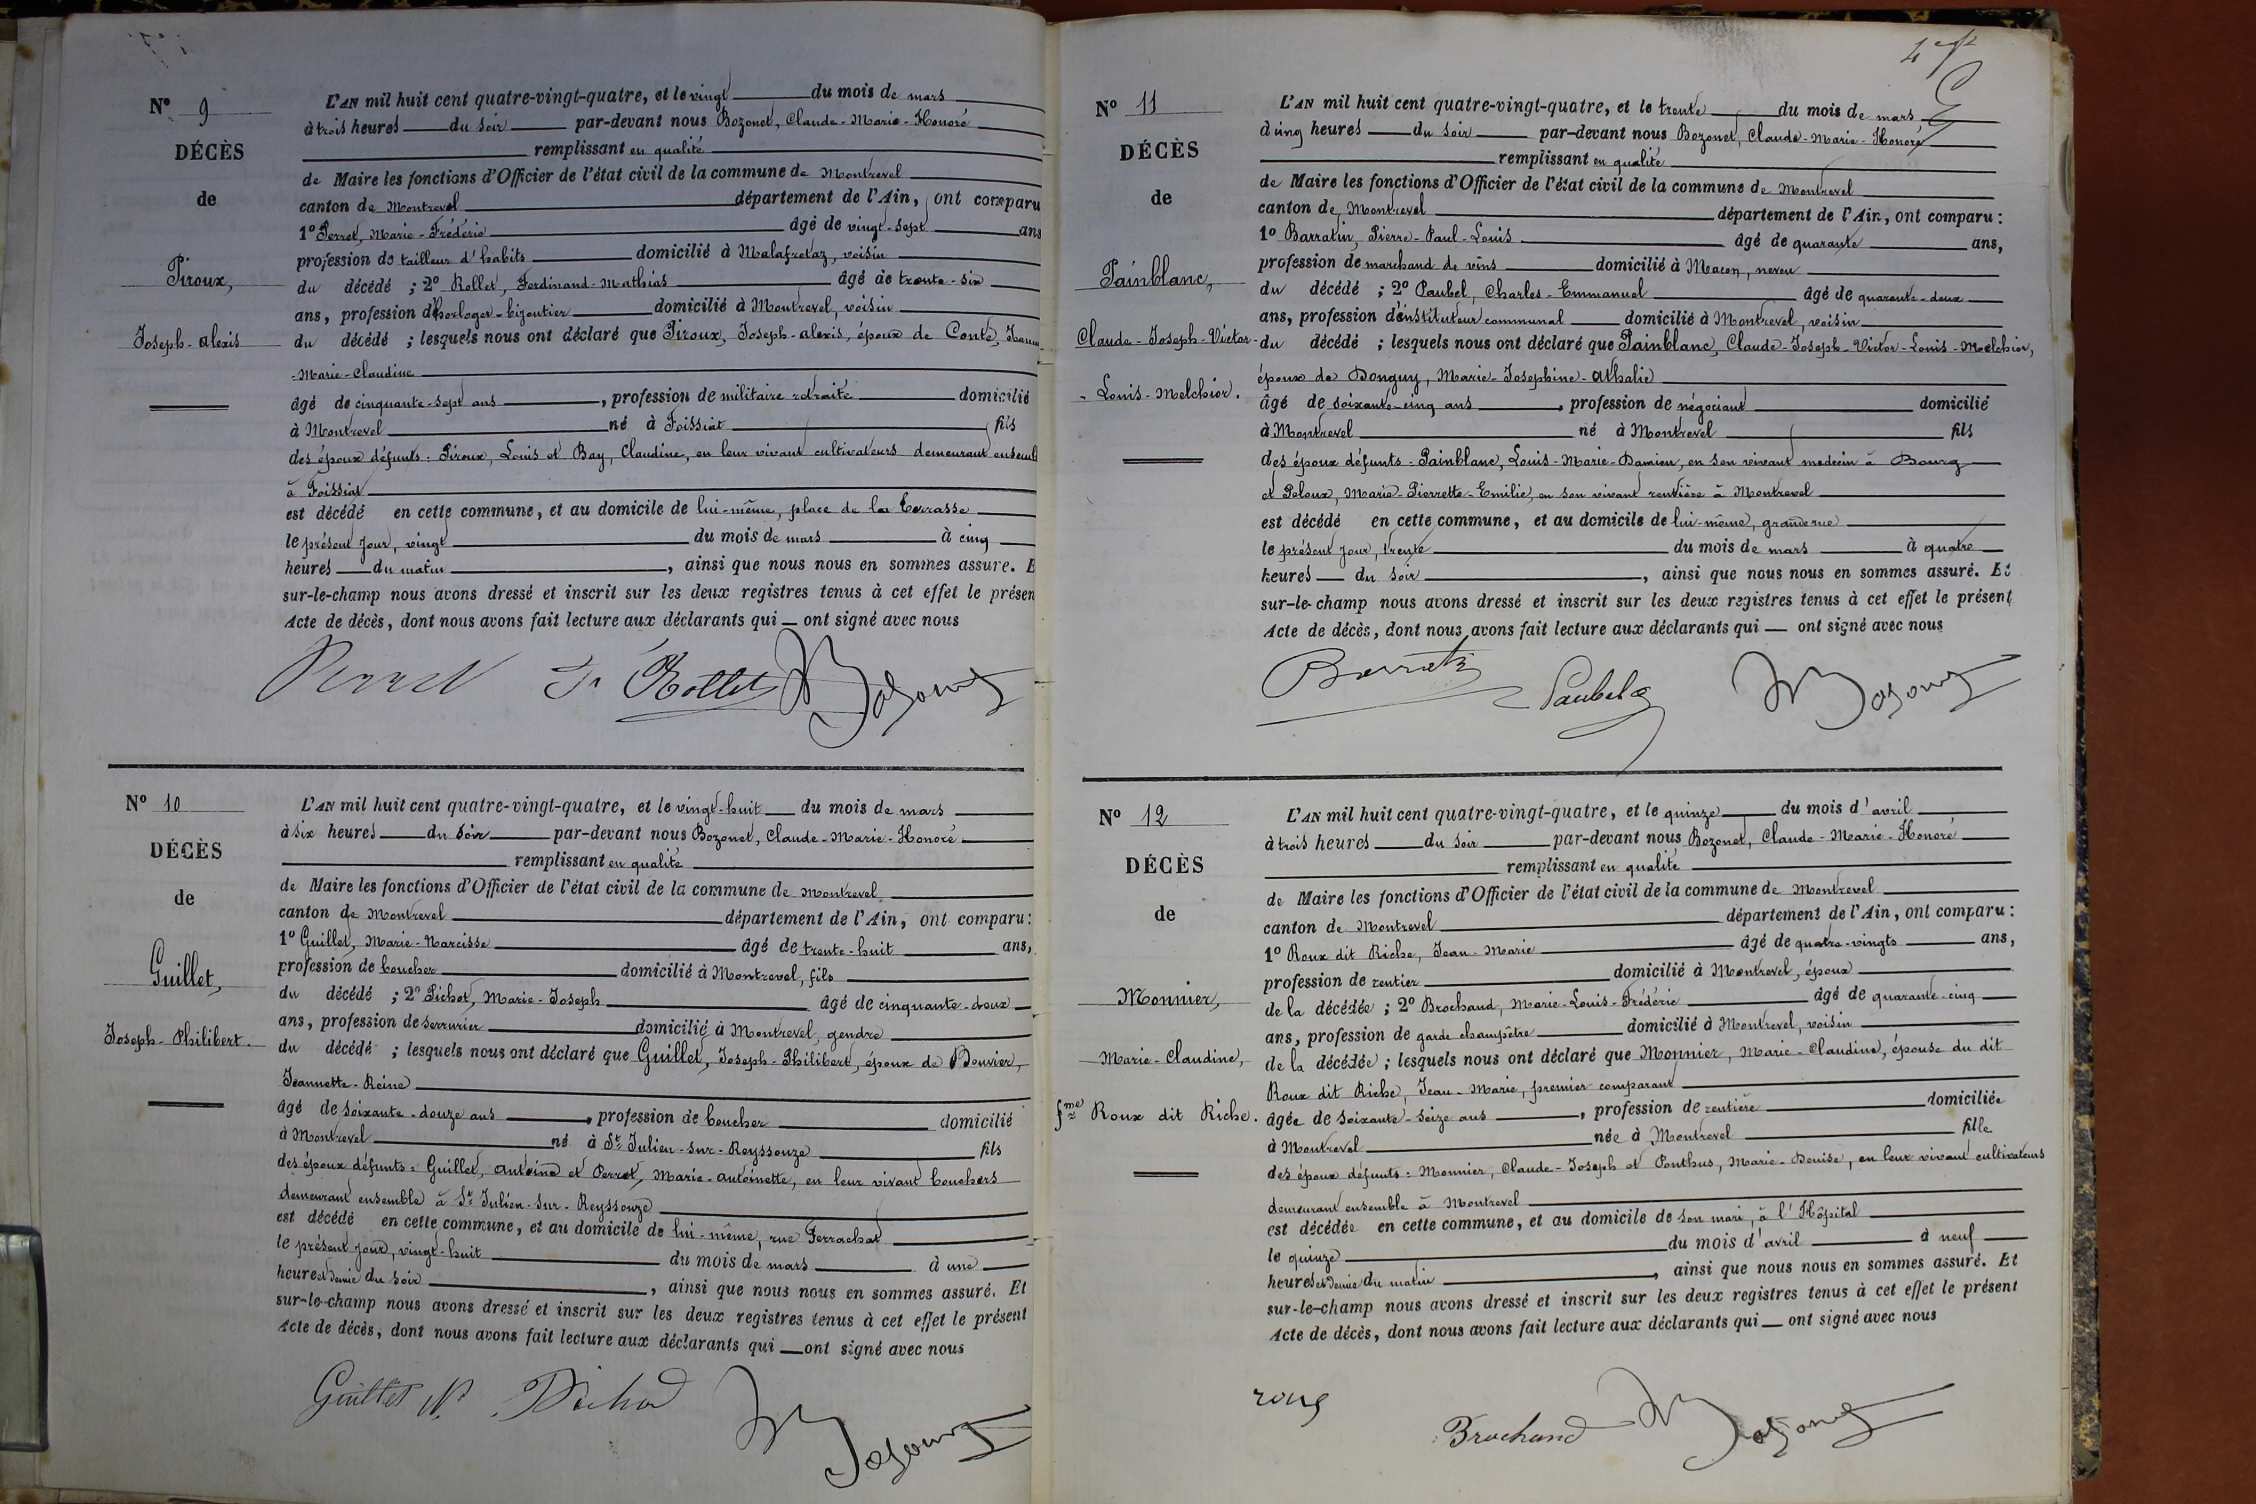 N° 9
DÉCÈS
de
Piroux,
Joseph-Alexis
L'AN mil huit cent quatre-vingt-quatre, et le vingt du mois de mars
à trois heures du soir par-devant nous Bozonet, Claude-Marie-Honoré
remplissant en qualité
de Maire les fonctions d'Officier de l'état civil de la commune de Montrevel
canton de Montrevel département de l'Ain, ont comparu
1° Perret, Marie-Frédéric âgé de vingt-sept ans
profession de tailleur d'habits domicilié à Malafretaz, voisin
du décédé ; 2° Rollet, Ferdinand-Mathias âgé de trente-six
ans, profession d'horloger-bijoutier domicilié à Montrevel, voisin
du décédé ; lesquels nous ont déclaré que Piroux, Joseph-Alexis, époux de Conte,
-Marie-Claudine
âgé de cinquante-sept ans, profession de militaire retraité domicilié
à Montrevel né à Foissiat fils
des époux défunts : Piroux, Louis et Bay, Claudine, en leur vivant cultivateurs demeurant ensemb
à Foissiat
est décédé en cette commune, et au domicile de lui-même, place de la Terrasse
le présent jour, vingt du mois de mars à cinq
heures du matin, ainsi que nous nous en sommes assuré. E
sur-le-champ nous avons dressé et inscrit sur les deux registres tenus à cet effet le présen
Acte de décès, dont nous avons fait lecture aux déclarants qui — ont signé avec nous
Perret F. Rollet Bozonet
N° 10
DÉCÈS
de
Guillet,
Joseph-Philibert.
L'AN mil huit cent quatre-vingt-quatre, et le vingt-huit du mois de mars
à six heures du soir par-devant nous Bozonet, Claude-Marie-Honoré
remplissant en qualité
de Maire les fonctions d'Officier de l'état civil de la commune de Montrevel
canton de Montrevel département de l'Ain, ont comparu :
1° Guillet, Marie-Narcisse âgé de trente-huit ans,
profession de boucher domicilié à Montrevel, fils
du décédé ; 2° Pichot, Marie-Joseph âgé de cinquante-deux
ans, profession de serrurier domicilié à Montrevel, gendre
du décédé ; lesquels nous ont déclaré que Guillet, Joseph-Philibert, époux de Bouvier,
Jeannette-Reine
âgé de soixante-douze ans, profession de boucher domicilié
à Montrevel né à St Julien-sur-Reyssouze fils
des époux défunts : Guillet, Antoine et Perret, Marie-Antoinette, en leur vivant bouchers
demeurant ensemble à St Julien-sur-Reyssouze
est décédé en cette commune, et au domicile de lui-même, rue Ferrachat
le présent jour, vingt-huit du mois de mars à une
heure et demie du soir, ainsi que nous nous en sommes assuré. Et
sur-le-champ nous avons dressé et inscrit sur les deux registres tenus à cet effet le présent
Acte de décès, dont nous avons fait lecture aux déclarants qui — ont signé avec nous
Guillet N. Pichod Bozonet
N° 11
DÉCÈS
de
Painblanc,
Claude-Joseph-Victor-
-Louis-Melchior.
L'AN mil huit cent quatre-vingt-quatre, et le trente du mois de mars
à cinq heures du soir par-devant nous Bozonet, Claude-Marie-Honoré
remplissant en qualité
de Maire les fonctions d'Officier de l'état civil de la commune de Montrevel
canton de Montrevel département de l'Ain, ont comparu :
1° Barratin, Pierre-Paul-Louis âgé de quarante ans,
profession de marchand de vins domicilié à Macon, neveu
du décédé ; 2° Paubel, Charles-Emmanuel âgé de quarante-deux
ans, profession d'instituteur communal domicilié à Montrevel, voisin
du décédé ; lesquels nous ont déclaré que Painblanc, Claude-Joseph-Victor-Louis-Melchior,
époux de Donguy, Marie-Josephine-Athalie
âgé de soixante-cinq ans, profession de négociant domicilié
à Montrevel né à Montrevel fils
des époux défunts-Painblanc, Louis-Marie-Damien, en son vivant medecin à Bourg
et Peloux, Marie-Pierrette-Emilie, en son vivant rentière à Montrevel
est décédé en cette commune, et au domicile de lui-même, grande rue
le présent jour, trente du mois de mars à quatre
heures du soir, ainsi que nous nous en sommes assuré. Et
sur-le-champ nous avons dressé et inscrit sur les deux registres tenus à cet effet le présent
Acte de décès, dont nous avons fait lecture aux déclarants qui — ont signé avec nous
Barratin Paubel Bozonet
N° 12
DÉCÈS
de
Monnier,
Marie-Claudine,
fme Roux dit Riche.
L'AN mil huit cent quatre-vingt-quatre, et le quinze du mois d'avril
à trois heures du soir par-devant nous Bozonet, Claude-Marie-Honoré
remplissant en qualité
de Maire les fonctions d'Officier de l'état civil de la commune de Montrevel
canton de Montrevel département de l'Ain, ont comparu :
1° Roux dit Riche, Jean-Marie âgé de quatre-vingts ans,
profession de rentier domicilié à Montrevel, époux
de la décédée ; 2° Brochand, Marie-Louis-Frédéric âgé de quarante-cinq
ans, profession de garde champêtre domicilié à Montrevel, voisin
de la décédée ; lesquels nous ont déclaré que Monnier, Marie-Claudine, épouse du dit
Roux dit Riche, Jean-Marie, premier comparant
âgée de soixante-seize ans, profession de rentière domiciliée
à Montrevel née à Montrevel fille
des époux défunts : Monnier, Claude-Joseph et Ponthus, Marie-Denise, en leur vivant cultivateurs
demeurant ensemble à Montrevel
est décédée en cette commune, et au domicile de son mari, à l'Hôpital
le quinze du mois d'avril à neuf
heures et demie du matin, ainsi que nous nous en sommes assuré. Et
sur-le-champ nous avons dressé et inscrit sur les deux registres tenus à cet effet le présent
Acte de décès, dont nous avons fait lecture aux déclarants qui — ont signé avec nous
roux Brochand Bozonet